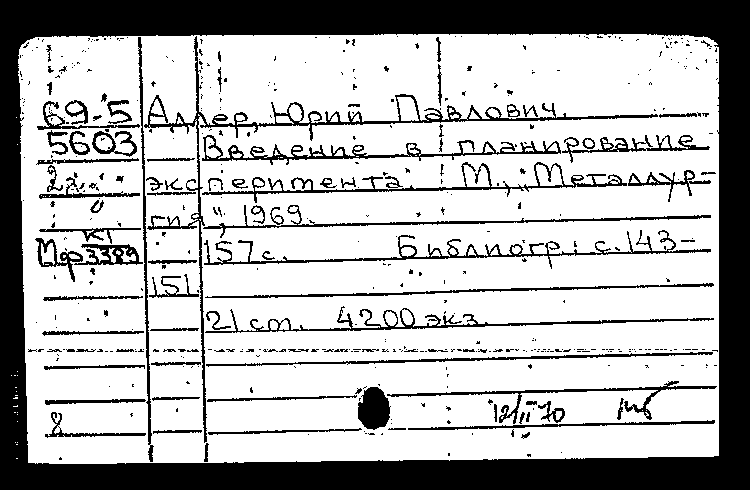 69-5 Адлер, Юрий Павлович.
5603 Введение в планирование
2 экз. эксперимента. М., „Металлур-
гия", 1969.
КТ
Мф 3389 157 с. Библиогр: с. 143-
151.
21 cm. 4200 экз.
8 12/II 70